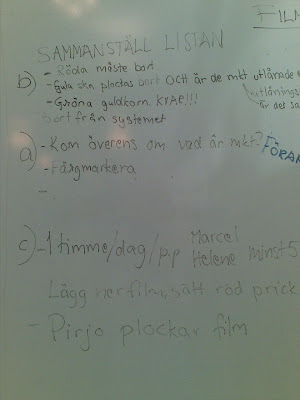 FILM
SAMMANSTÄLL LISTAN
b) - Röda måste bort
- Gula ska plockas bort OCH är de mkt utlånade
- Gröna guldkorn. KVAR!!!
utlånings
är det sa
bort från systemet
a) - Kom överens om vad är mkt?
- Färgmarkera
-
c) - 1 timme/dag/p.p Marcel
Helene minst 5
Lägg ner film, sätt röd prick
- Pirjo plockar film